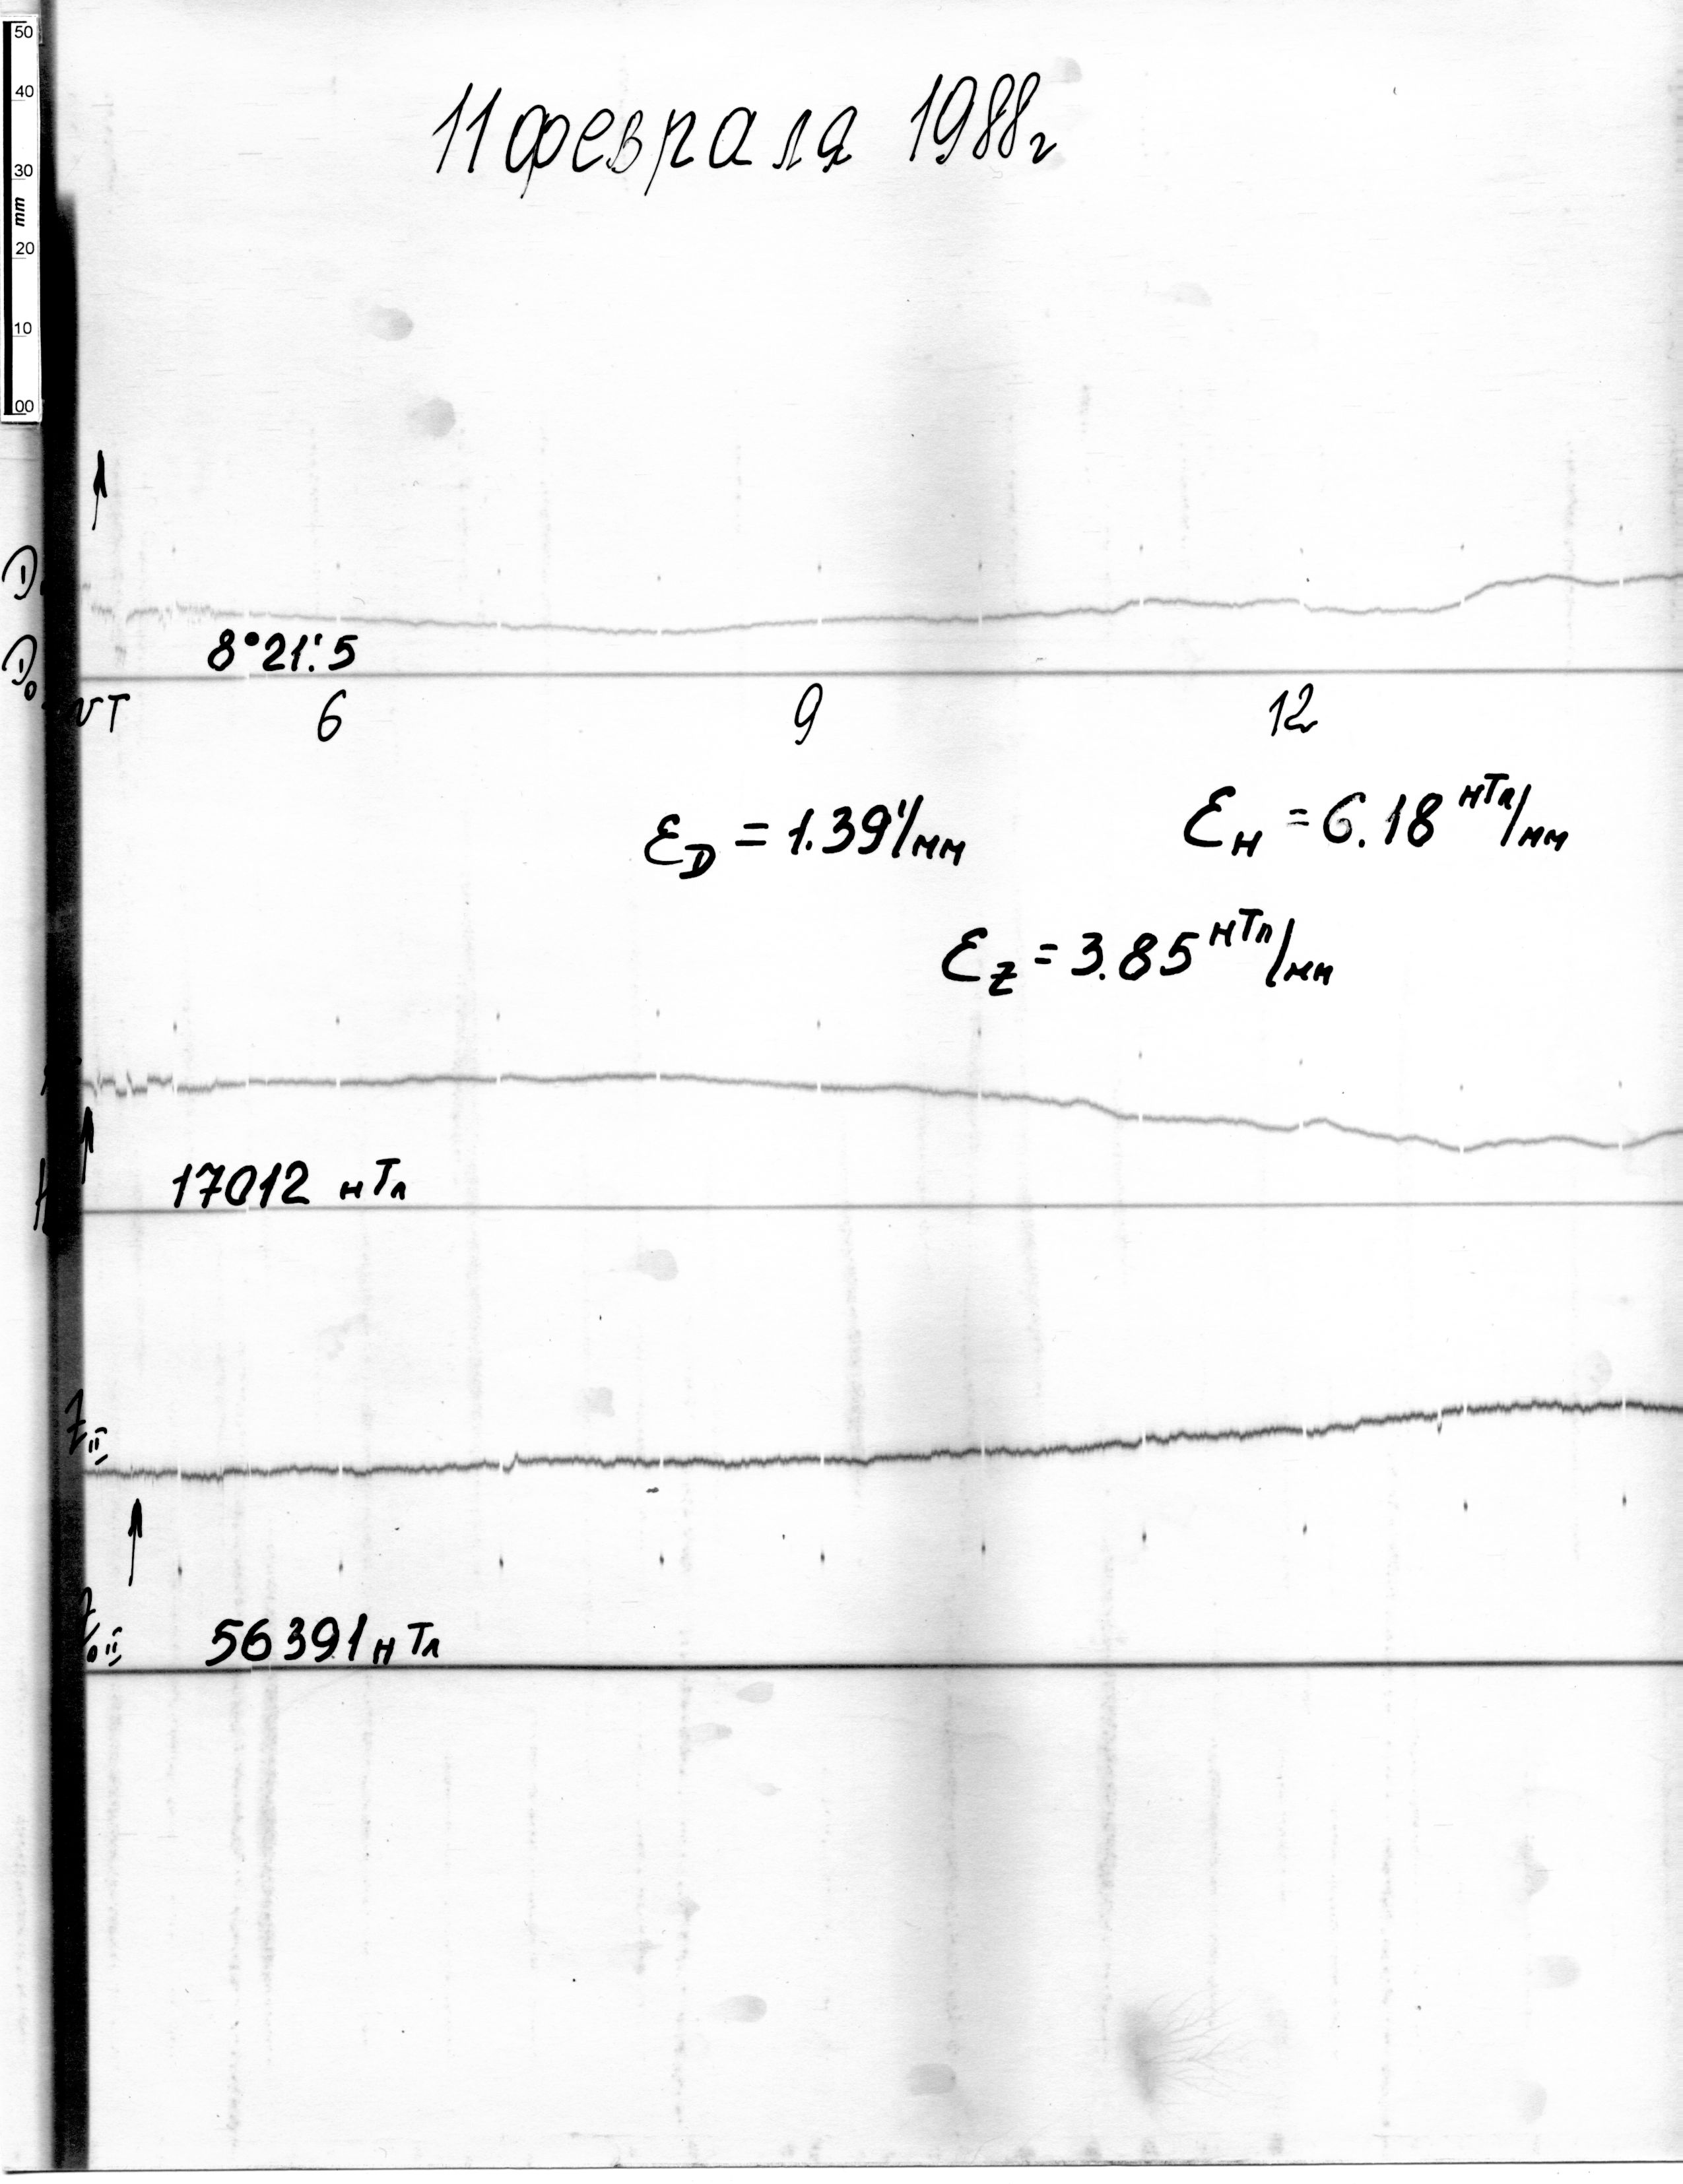 50
40
30
mm
20
10
00
11 февраля 1988г
D
8°21.'5
D₀
UT 6 9 12
ε_D = 1.39'/мм
ε_H = 6.18 нТл/мм
ε_Z = 3.85 нТл/мм
17012 нТл
Z_II
Z₀II
56391 нТл